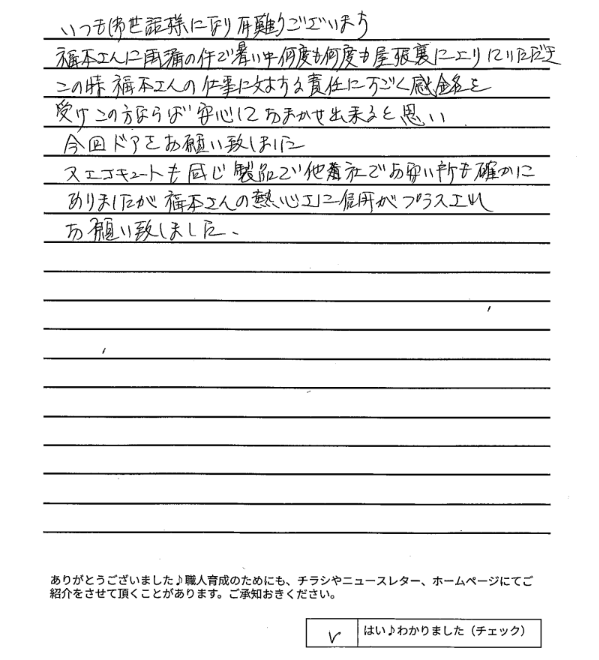 いつもお世話様になり有難うございます
福本さんに雨漏の件で暑い中何度も何度も屋根裏に上りていただき
この時福本さんの仕事に対する責任にすごく感銘を
受けこの方ならば安心しておまかせ出来ると思い
今回ドアをお願い致しました
又エコキュートも同じ製品で他着社でお安い所も確かに
ありましたが福本さんの熱心さに信用がプラスされ
お願い致しました、
ありがとうございました♪職人育成のためにも、チラシやニュースレター、ホームページにてご
紹介をさせて頂くことがあります。ご承知おきください。
v はい♪わかりました（チェック）